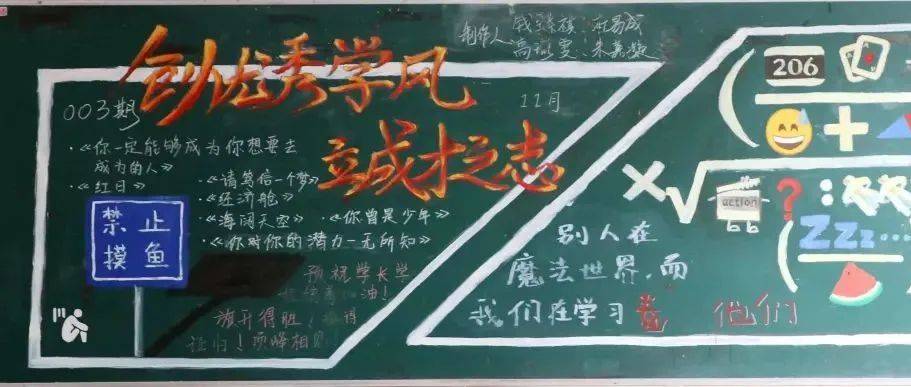 创优秀学风
立成才之志
制作人
003期
11月
·《你一定能够成为你想要去
成为的人》
·《红日》
·《请笃信一个梦》
·《经济舱》
·《海阔天空》 ·《你曾是少年》
·《你对你的潜力一无所知》
禁止
摸鱼
预祝学长学
油！
旗开得胜！
归！顶峰相
别人在
魔法世界，而
我们在学习
他们
206
action
?
Zzz